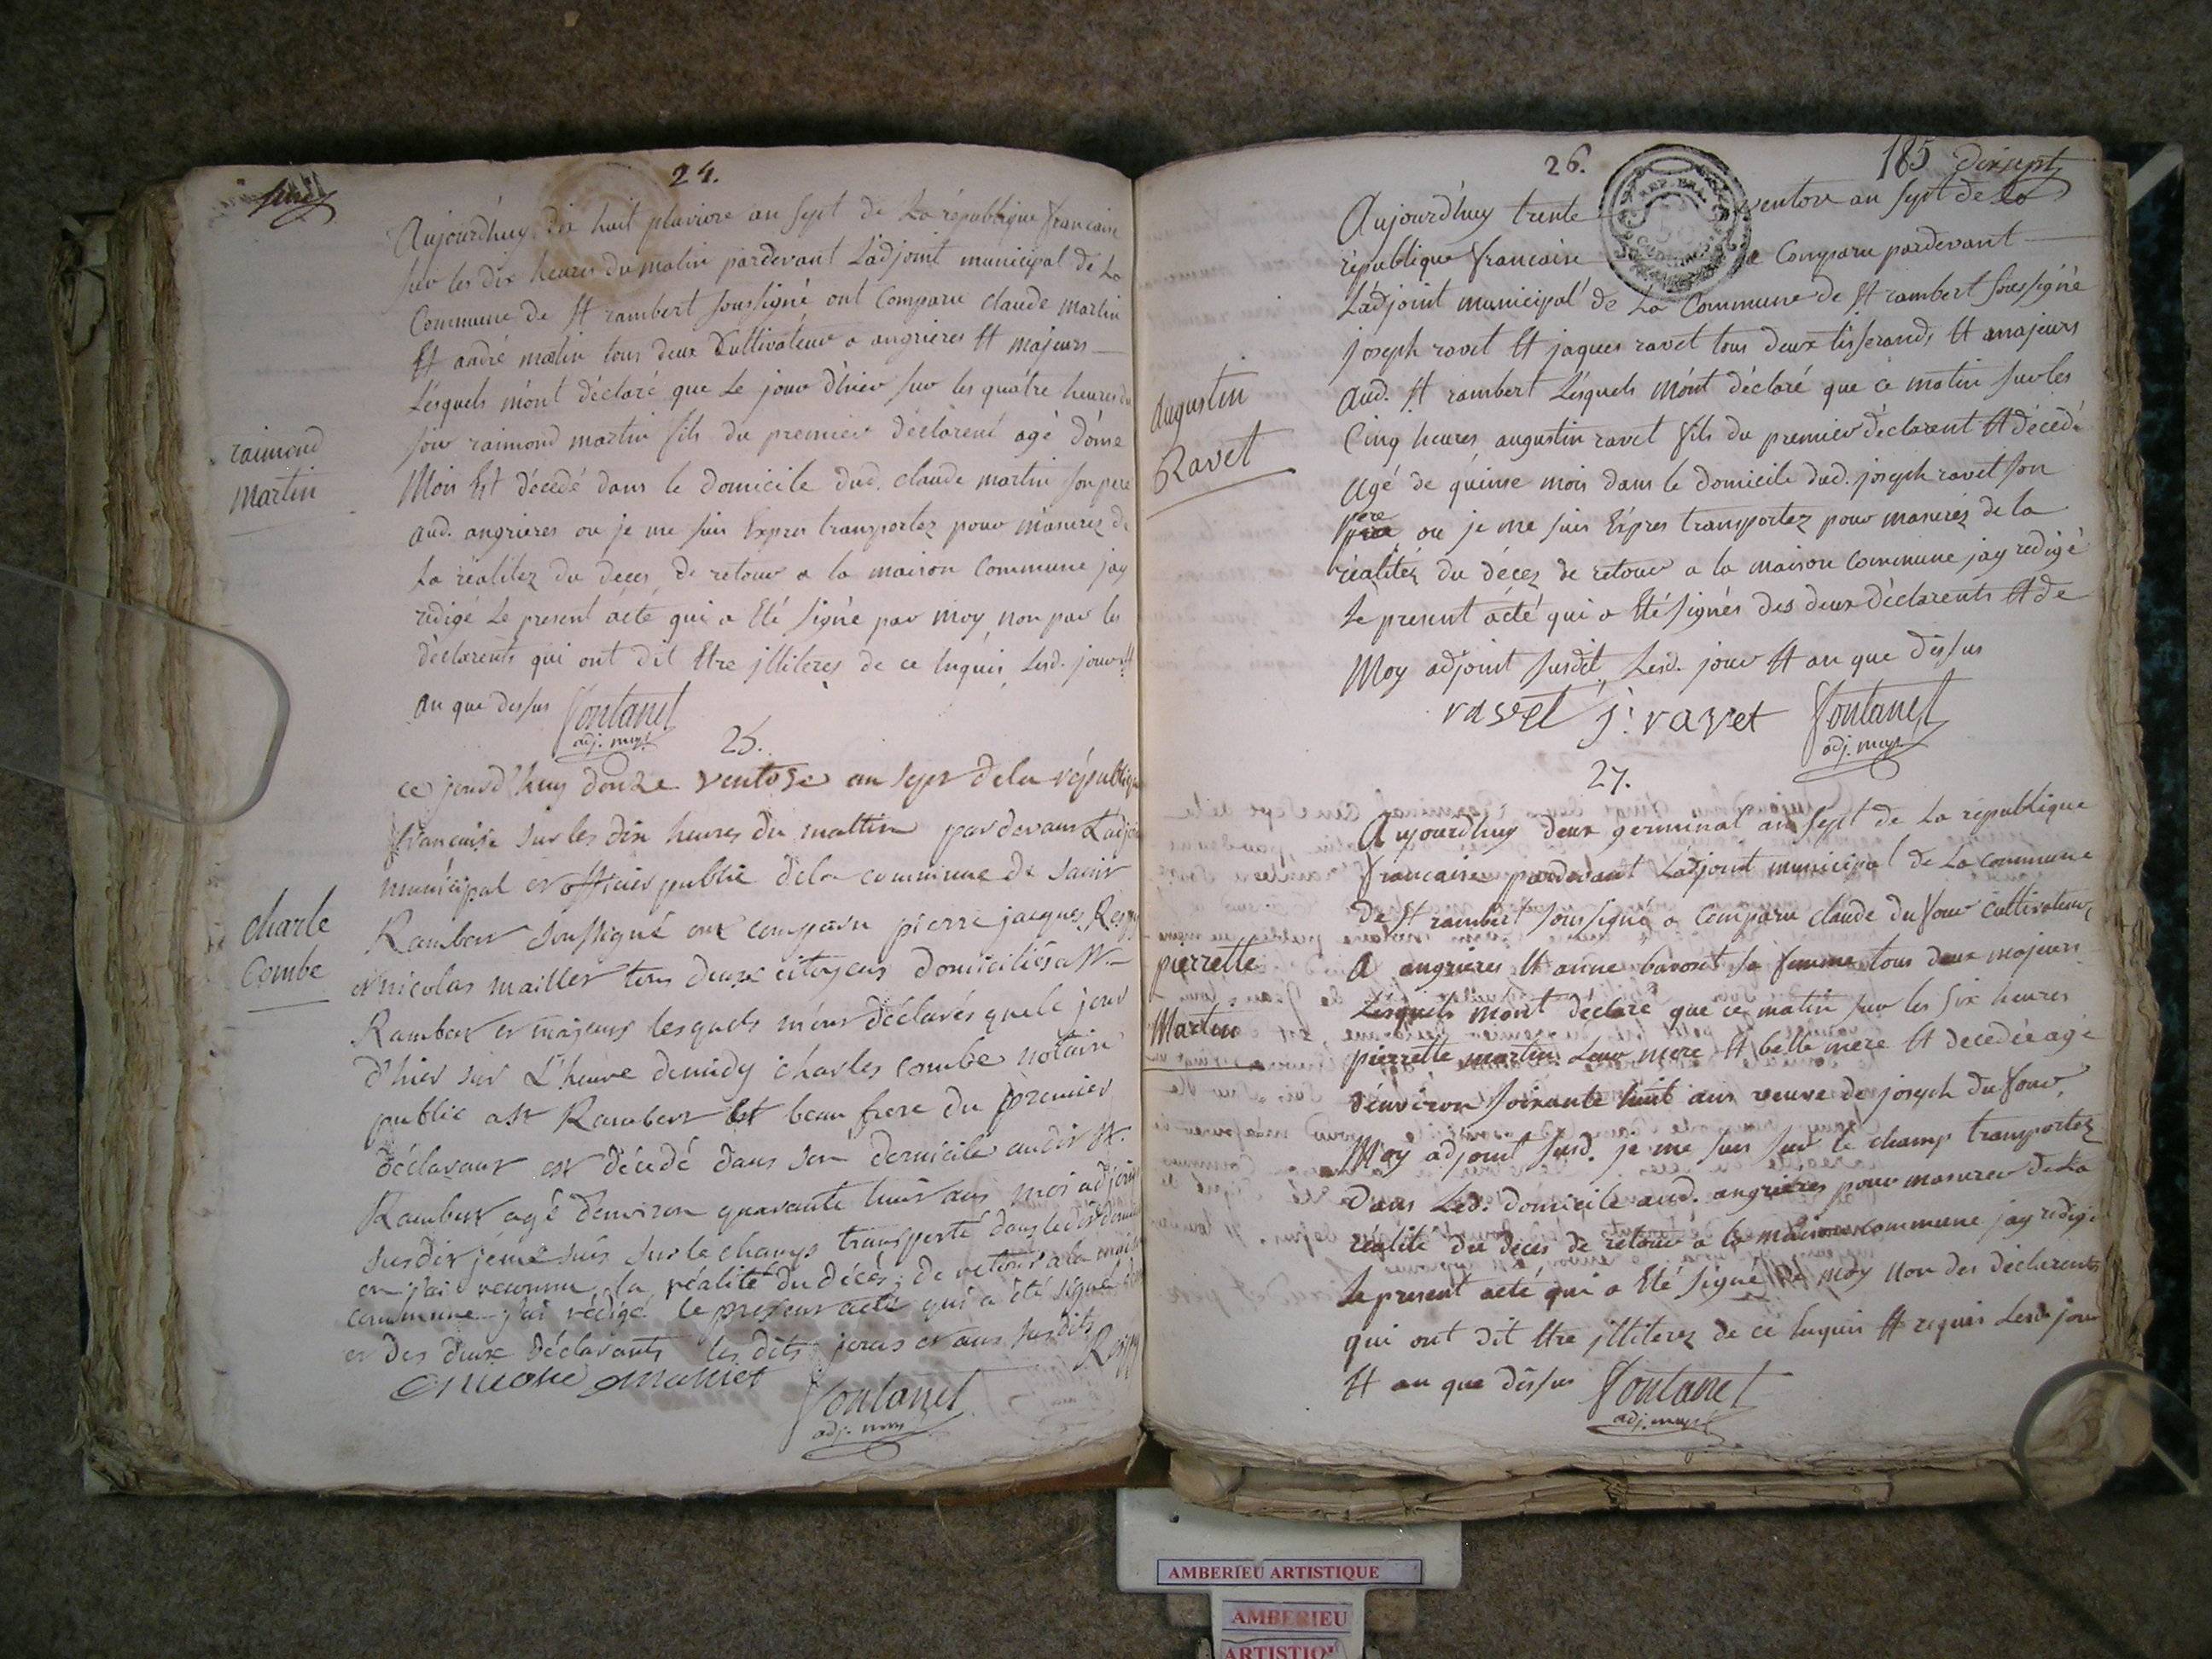 24.
Aujourd'huy dix huit pluviose an sept de La république francaise
sur les dix heures du matin pardevant L'adjoint municipal de La
Commune de St rambert soussigné ont Comparu claude martin
Et andré matin tous deux Cultivateur a angrieres Et majeurs
Lésquels mónt déclaré que Le jour d'hier sur les quatre heures du
soir raimond martin fils du premier déclarent agé d'onse
Mois Est décédé dans le domicile dud. claude martin son pere
aud. angrieres ou je me suis Expres transportez pour m'asurez de
La réalitez du deces de retour a la maison Commune jay
redigé Le present acté qui a Eté signé par moy, non par les
déclarents qui ont dit Etre jlliteres de ce Enquis, Lesd. jour Et
an que dessus fontanel
adj. mupl
raimond
martin
25.
ce jourd'huy douze ventose an sept de la république
francaise sur les dix heures du mattin pardevant L'adjoi
municipal et officier public dela commune de saint
Rambert soussigné ont comparu pierre jacques Reipy
et nicolas maillet tous deux citoyens domiciliés a St
Rambert et majeurs lesquels m'ont déclarés que le jour
d'hier sur L'heure de midy charles combe notaire
public a St Rambert Et beau frere du premier
déclarant est décédé dans son domicile audit St.
Rambert agé d'environ quarante huit ans moi adjoint
susdit je me suis sur le champs transporté dans le dit domi
et j'ai reconnu la réalité du décés, de retour a la mais
commune j'ai redigé le present acte qui a été signé
et des deux déclarants les dits jours et ans susdits
Maillet fontanel Reipy
adj. mupl
charle
Combe
26. 185 dixsept
Aujourd'huy trente ventose an sept de La
république francaise a Comparu pardevant
L'adjoint municipal de La Commune de St rambert soussigné
joseph ravet Et jaques ravet tous deux tisserands Et majeurs
aud. St rambert Lésquels mónt déclaré que ce matin sur les
Cinq heures augustin ravet fils du premier déclarent Et décédé
agé de quinse mois dans le domicile dud. joseph ravet son
pere
ou je me suis Expres transportez pour masurez de la
réalitez du décez de retour a la maison commune jay redigé
Le present acté qui a Eté signés des deux déclarents Et de
Moy adjoint susdit, Lesd. jour Et an que dessus
ravet j. ravet fontanel
adj. mupl
augustin
Ravet
27.
Aujourdhuy deux germinal an sept de La republique
francaise pardevant L'adjoint municipal de La commune
de St rambert soussigné a Comparu claude dufour cultivateur
a angrieres Et anne bavoret sa femme tous deux majeurs
Lésquels mónt déclaré que ce matin sur les six heures
pierrette martin Leur mere Et belle mere Et decedée agé
d'environ soixante huit ans veuve de joseph dufour,
Moy adjoint susd. je me suis sur le champ transportez
dans Led. domicile aud. angrieres pour masurer de La
réalité du deces de retour a la maison commune jay redigé
Le present acté qui a Eté signé de moy non des déclarents
qui ont dit Etre jlliterez de ce Enquis Et requis Lesd. jour
Et an que dessus fontanel
adj. mupl
pierrette
Martin
REP. FRA.
AMBERIEU ARTISTIQUE
AMBERIEU
ARTISTIQU